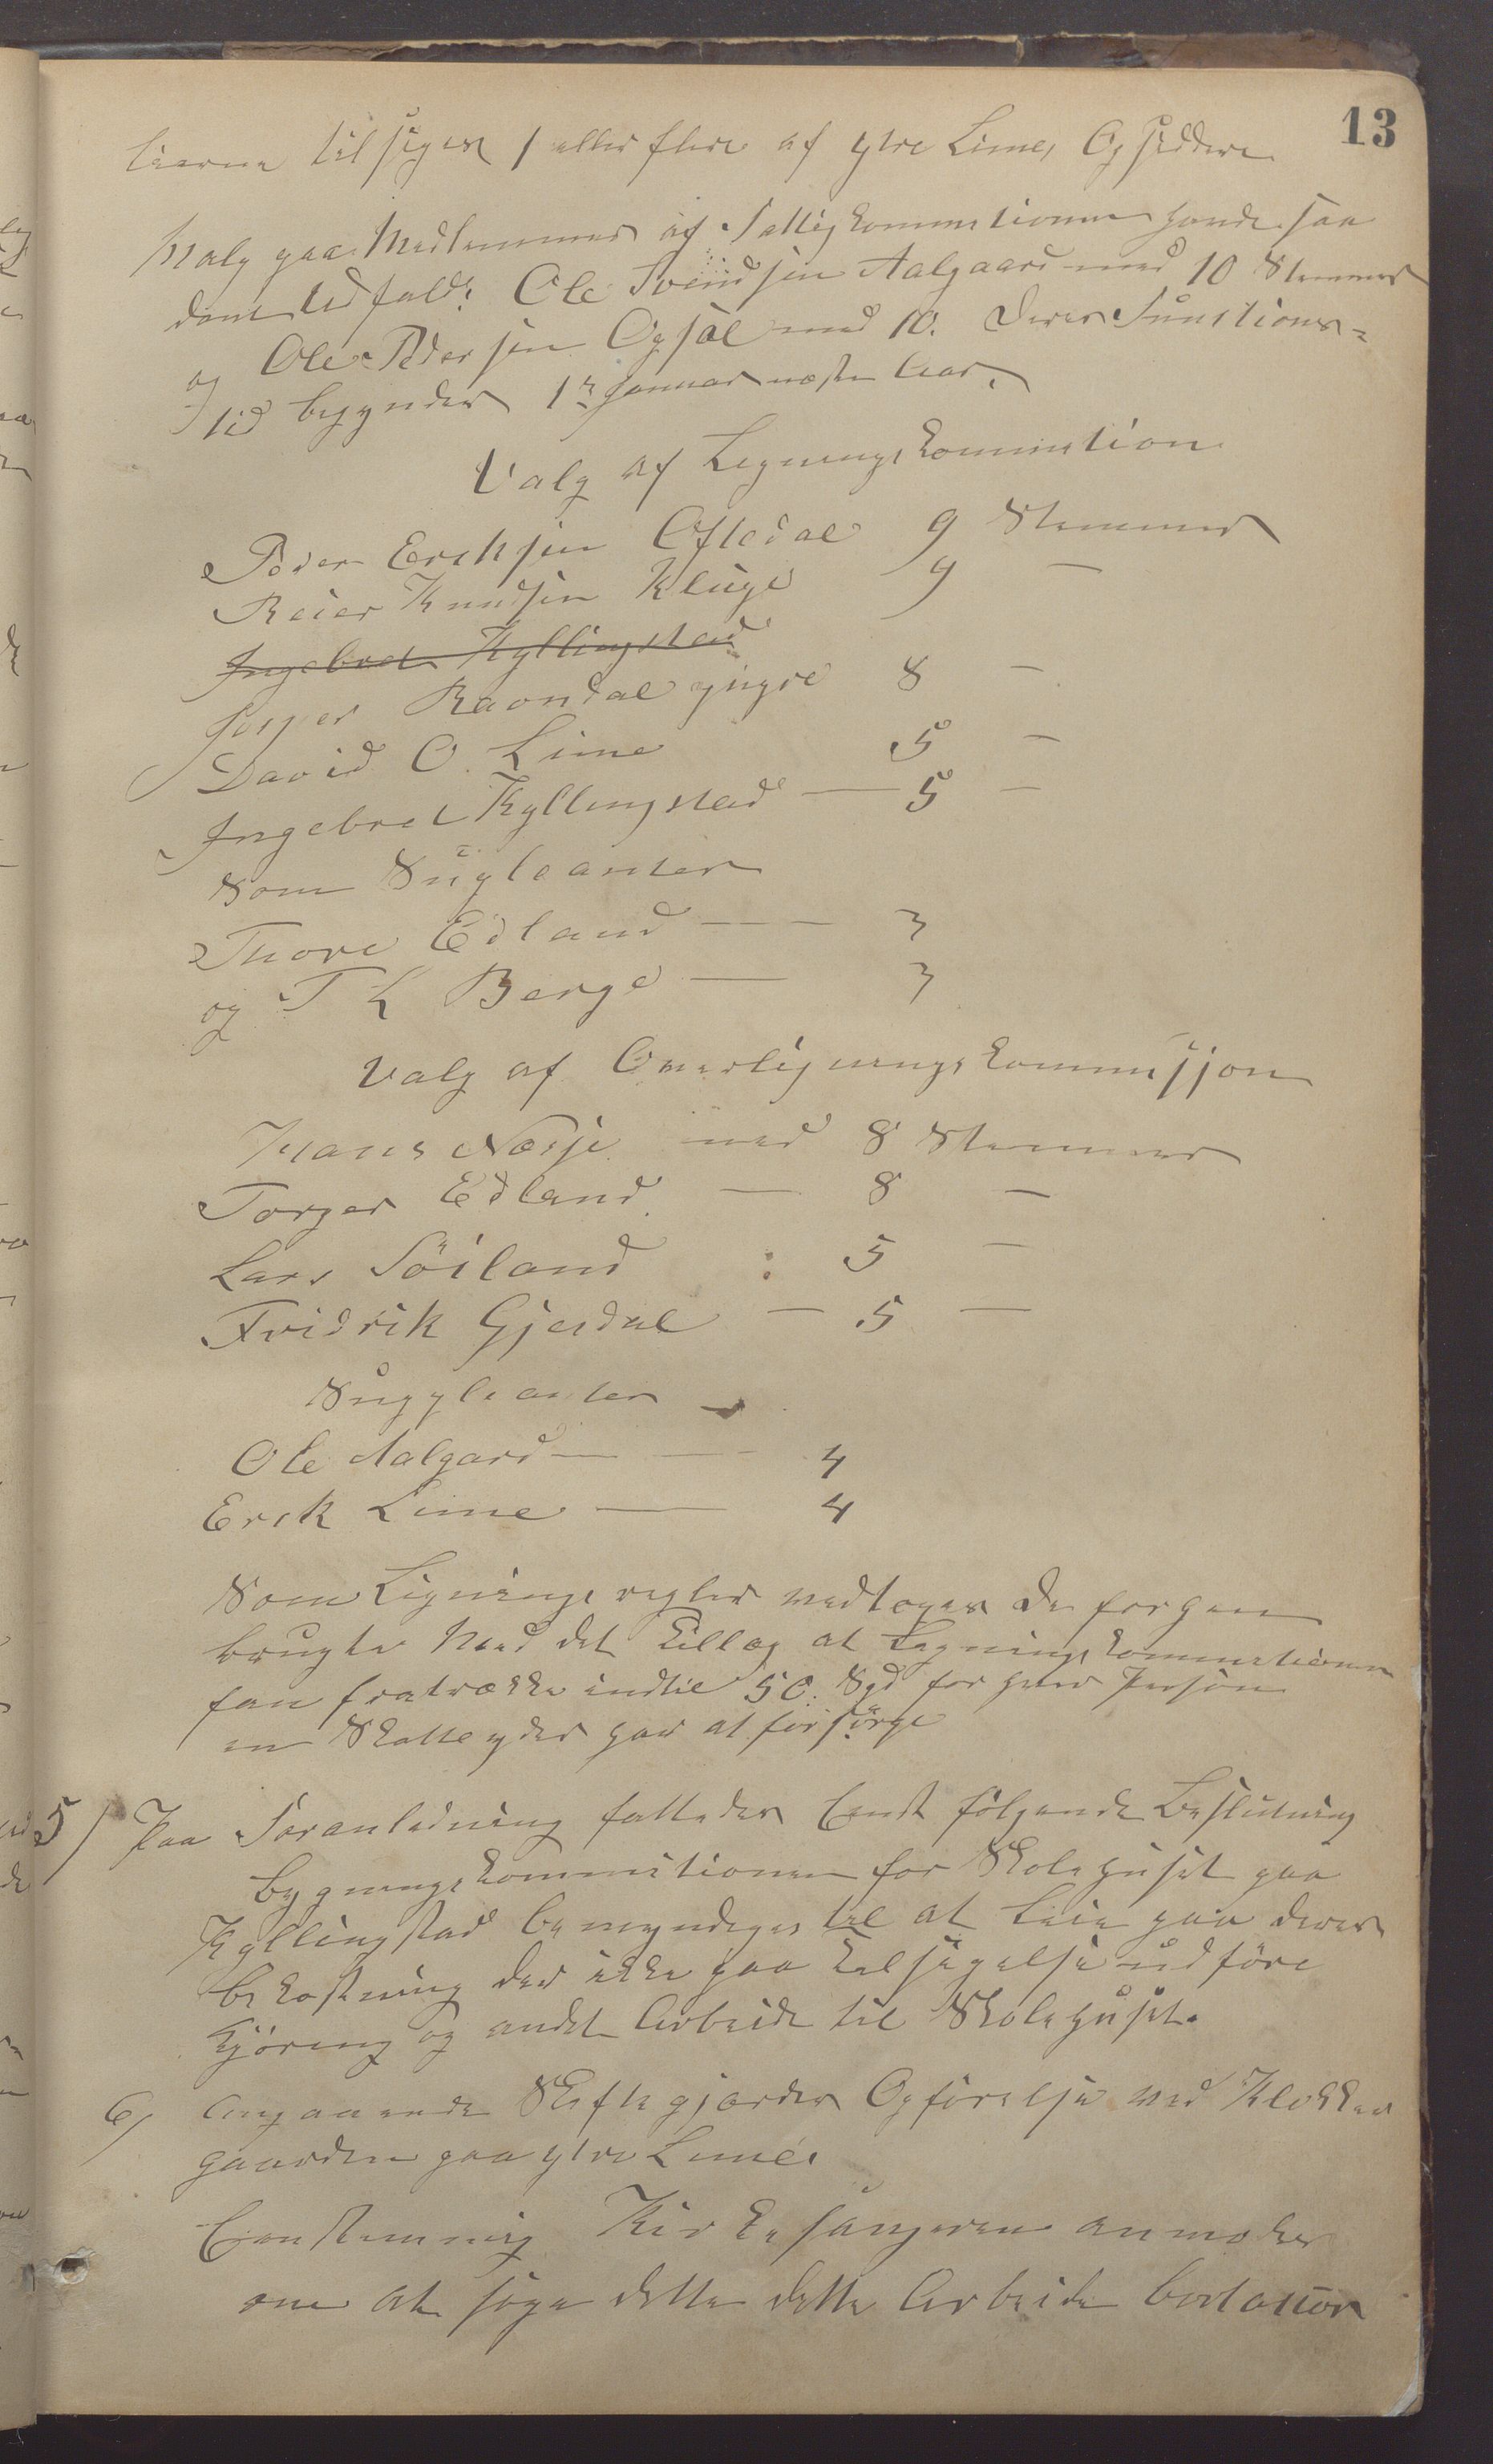 13
tierne tilsiges 1 eller flere af ytre Limes Opsiddere
Valg paa Medlemmer af Fattigkommitionen havde saa
dant Udfald: Ole Svendsen Aalgaard med 10 Stemmer
og Ole Pedersen Opsal med 10. Deres Funktions-
tid begynder 1ste Januar næste Aar.
Valg af Ligningskommition
Peder Eriksen Oftedal 9 Stemmer
Reier Knudsen Kluge 9 —
Ingebret Kyllingstad
Jesper Ravndal yngre 8 —
David O. Lime 5 —
Ingebret Kyllingstad — 5 —
Som Supleanter
Thore Edland — — 3
og T L Berge — 3
Valg af Overligningskommisjon
Hans Næsje med 8 Stemmer
Torger Edland — 8 —
Lars Söiland : 5 —
Fridrik Gjesdal — 5 —
Suppleanter
Ole Aalgard — — 4
Erik Lime — 4
Som Ligningsregler vedtoges de forhen
brugte Med det Tillæg at Ligningskommitionen
kan fratrække indtil 50 Spd for hver Person
en Skatteyder har at forsörge
5/ Paa Foranledning fattedes Eenst følgende Beslutning
Bygningskommitionen for Skolehuset paa
Kyllingstad bemyndiges til at leie paa deres
bekostning der ikke paa tilsigelse udföre
Kjöring og andet Arbeide til Skolehuset.
6/ Angaaende Skiftegjærdes Opförelse ved Klokker
gaarden paa ytre Lime.
Eenstemmig Kirkesangeren anmodes
om at söge dette dette Arbeide bortak